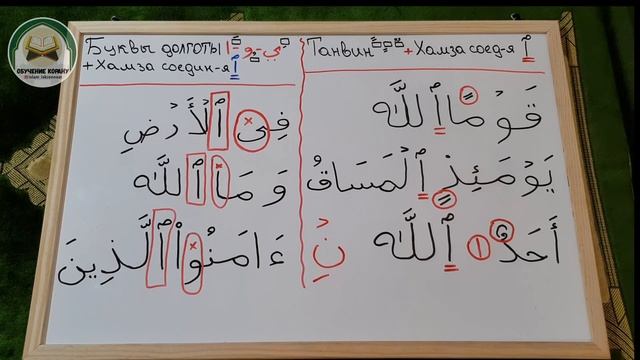 ОБУЧЕНИЕ КОРАНУ
Буквы долготы ا - و - ي
+ Хамза соедин-я ٱ
فِى ٱلْأَرْضِ
وَمَا ٱللَّه
ءَامَنُوا۟ ٱلَّذِينَ
Танвин ًٌٍ + Хамза соед-я ٱ
قَوْمًا ٱللَّه
يَوْمَئِذٍ ٱلْمَسَاقُ
أَحَدٌ ١ ٱللَّه نِ